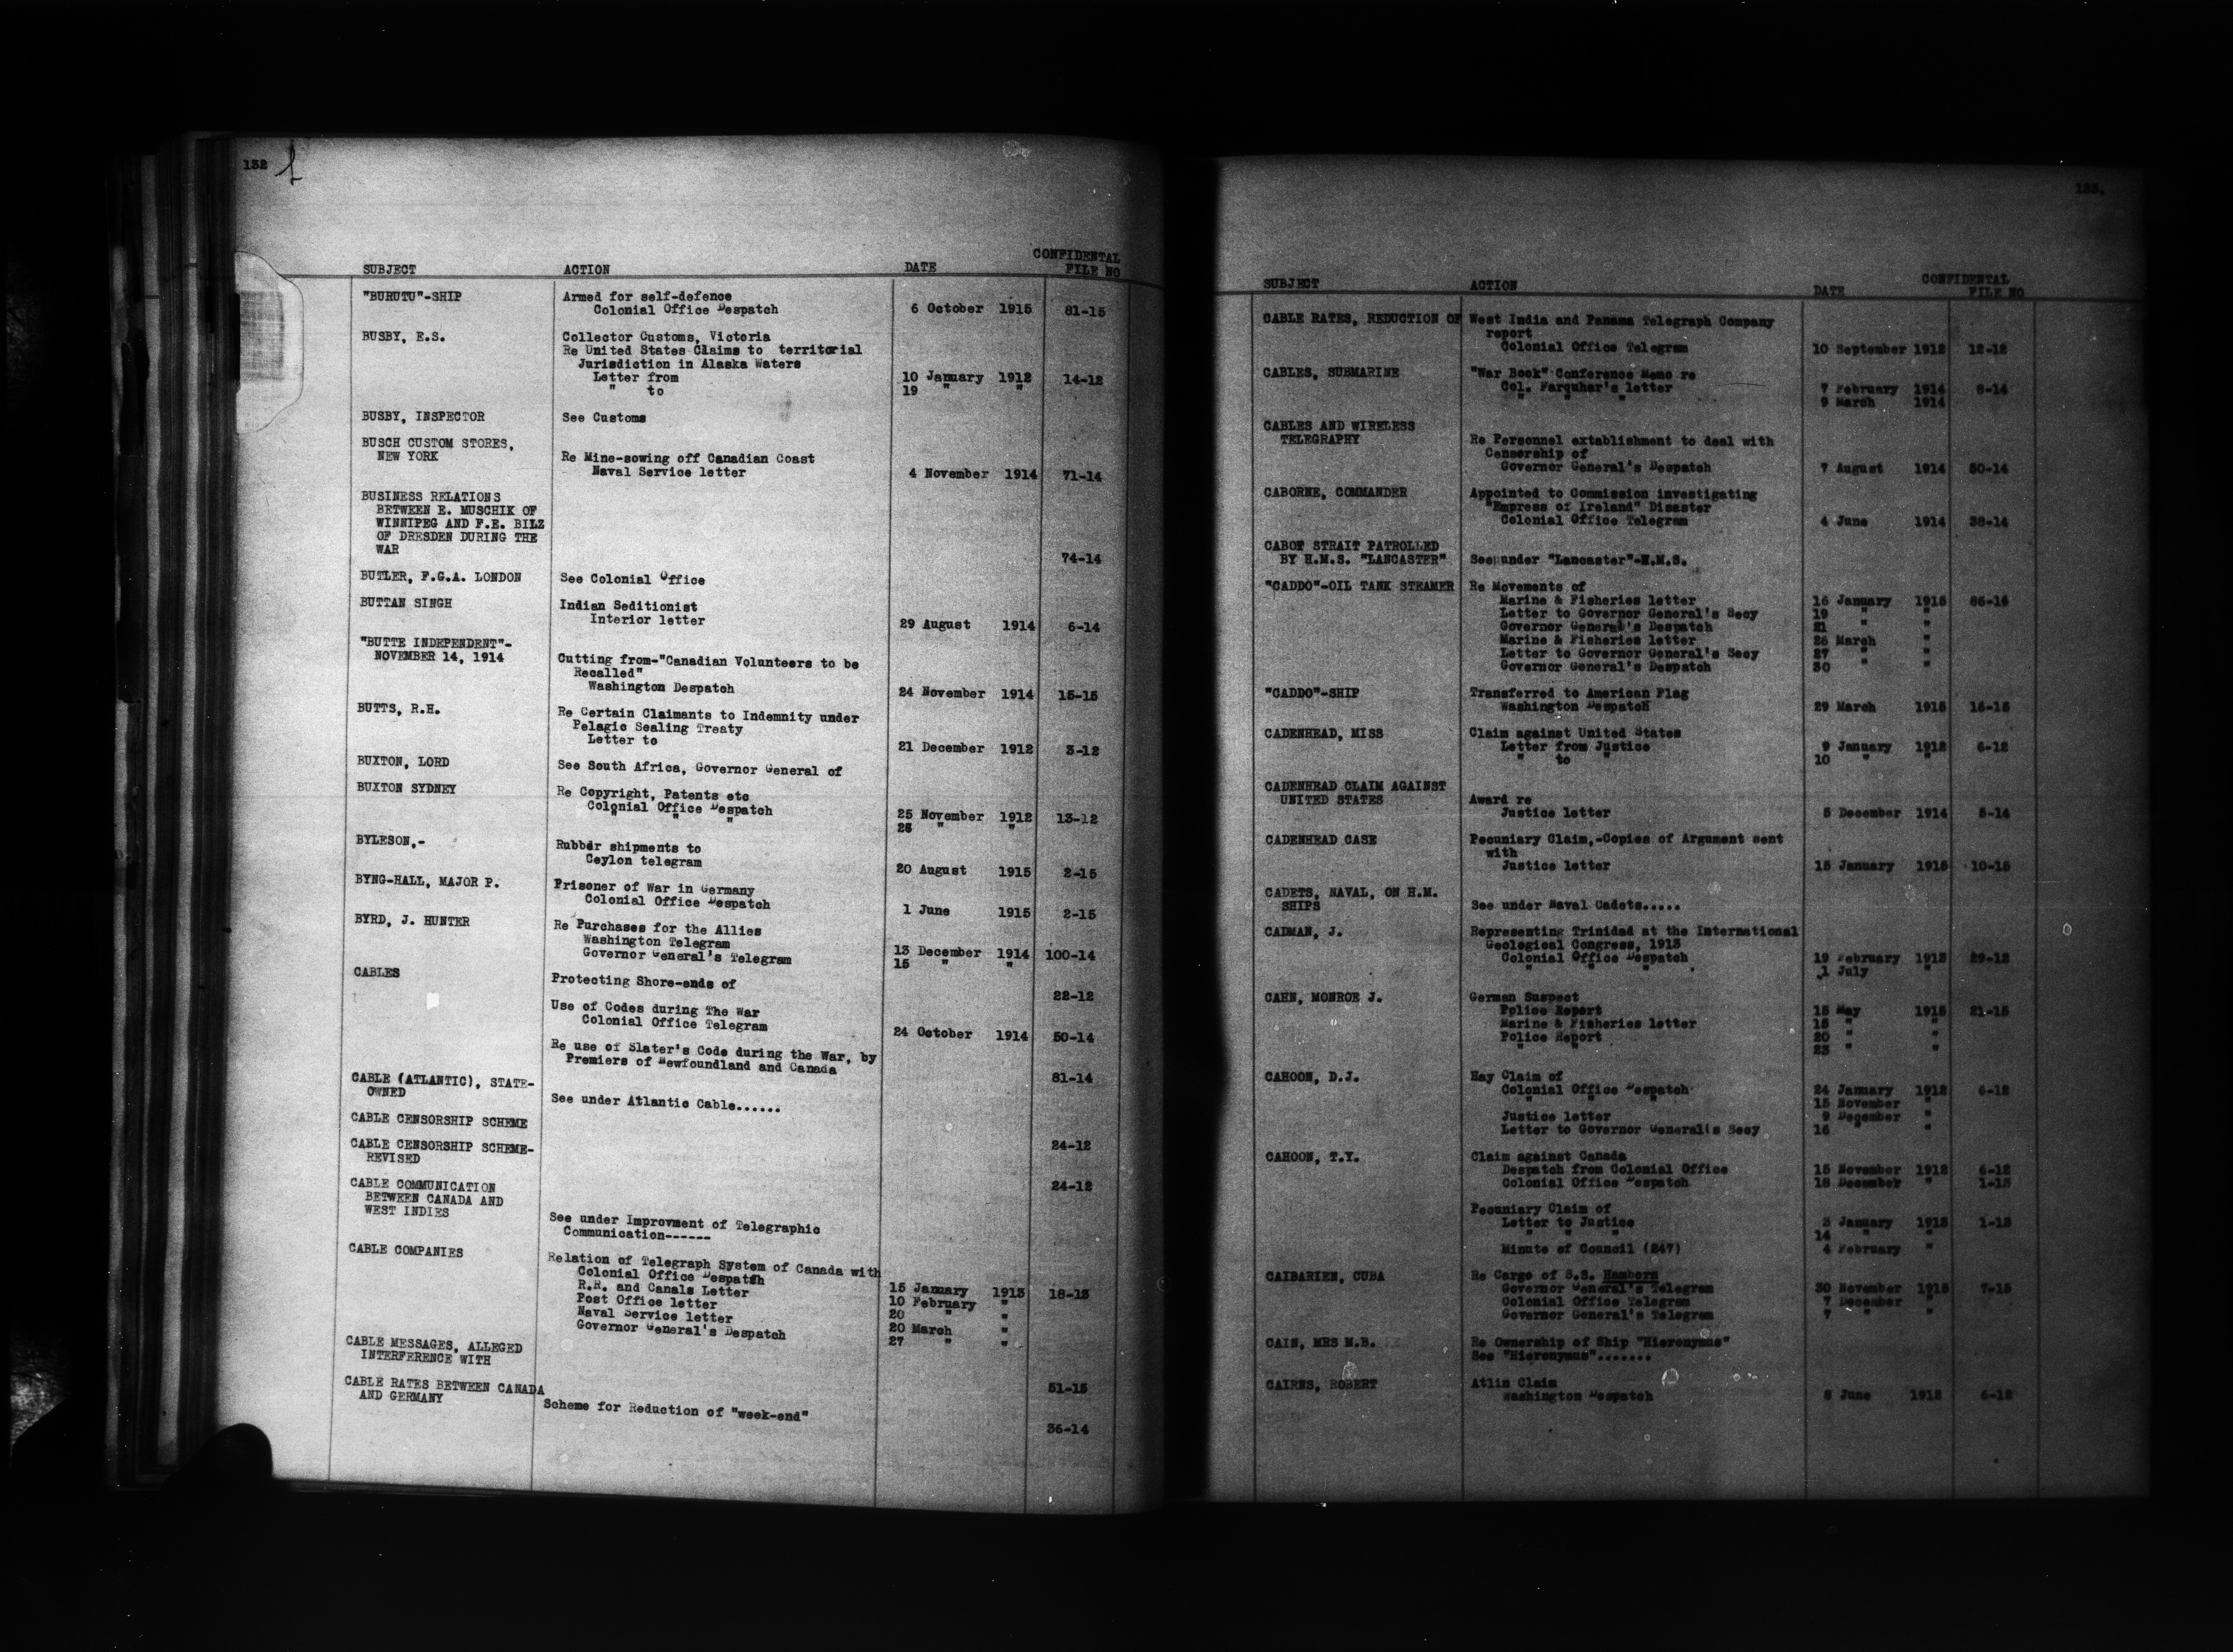 132
SUBJECT ACTION DATE CONFIDENTAL FILE NO
"BURUTU"-SHIP Armed for self-defence
Colonial Office Despatch 6 October 1915 81-15
BUSBY, E.S. Collector Customs, Victoria
Re United States Claims to territorial
Jurisdiction in Alaska Waters
Letter from 10 January 1912 14-12
" to 19 " "
BUSBY, INSPECTOR See Customs
BUSCH CUSTOM STORES,
NEW YORK Re Mine-sowing off Canadian Coast
Naval Service letter 4 November 1914 71-14
BUSINESS RELATIONS
BETWEEN E. MUSCHIK OF
WINNIPEG AND F.E. BILZ
OF DRESDEN DURING THE
WAR 74-14
BUTLER, F.G.A. LONDON See Colonial Office
BUTTAN SINGH Indian Seditionist
Interior letter 29 August 1914 6-14
"BUTTE INDEPENDENT"-
NOVEMBER 14, 1914 Cutting from-"Canadian Volunteers to be
Recalled"
Washington Despatch 24 November 1914 15-15
BUTTS, R.H. Re Certain Claimants to Indemnity under
Pelagic Sealing Treaty
Letter to 21 December 1912 3-12
BUXTON, LORD See South Africa, Governor General of
BUXTON SYDNEY Re Copyright, Patents etc
Colonial Office Despatch 25 November 1912 13-12
" " " 26 " "
BYLESON,- Rubber shipments to
Ceylon telegram 20 August 1915 2-15
BYNG-HALL, MAJOR P. Prisoner of War in Germany
Colonial Office Despatch 1 June 1915 2-15
BYRD, J. HUNTER Re Purchases for the Allies
Washington Telegram 13 December 1914 100-14
Governor General's Telegram 15 " "
CABLES Protecting Shore-ends of 22-12
Use of Codes during The War
Colonial Office Telegram 24 October 1914 50-14
Re use of Slater's Code during the War, by
Premiers of Newfoundland and Canada 81-14
CABLE (ATLANTIC), STATE-
OWNED See under Atlantic Cable......
CABLE CENSORSHIP SCHEME 24-12
CABLE CENSORSHIP SCHEME-
REVISED 24-12
CABLE COMMUNICATION
BETWEEN CANADA AND
WEST INDIES See under Improvment of Telegraphic
Communication------
CABLE COMPANIES Relation of Telegraph System of Canada with
Colonial Office Despatch 15 January 1913 18-13
R.R. and Canals Letter 10 February "
Post Office letter 20 " "
Naval Service letter 20 March "
Governor General's Despatch 27 " "
CABLE MESSAGES, ALLEGED
INTERFERENCE WITH 51-15
CABLE RATES BETWEEN CANADA
AND GERMANY Scheme for Reduction of "week-end" 36-14
133.
SUBJECT ACTION DATE CONFIDENTAL FILE NO
CABLE RATES, REDUCTION OF West India and Panama Telegraph Company
report
Colonial Office Telegram 10 September 1912 12-12
CABLES, SUBMARINE "War Book" Conference Memo re
Col. Farquhar's letter 7 February 1914 8-14
" " " 9 March 1914
CABLES AND WIRELESS
TELEGRAPHY Re Personnel extablishment to deal with
Censorship of
Governor General's Despatch 7 August 1914 50-14
CABORNE, COMMANDER Appointed to Commission investigating
"Empress of Ireland" Disaster
Colonial Office Telegram 4 June 1914 38-14
CABOT STRAIT PATROLLED
BY H.M.S. "LANCASTER" See under "Lancaster"-H.M.S.
"CADDO"-OIL TANK STEAMER Re Movements of
Marine & Fisheries letter 16 January 1915
Letter to Governor General's Secy 19 " "
Governor General's Despatch 21 " "
Marine & Fisheries letter 26 March "
Letter to Governor General's Secy 27 " "
Governor General's Despatch 30 " "
"CADDO"-SHIP Transferred to American Flag
Washington Despatch 29 March 1915 15-15
CADENHEAD, MISS Claim against United States
Letter from Justice 9 January 1912 6-12
" to " 10 " "
CADENHEAD CLAIM AGAINST
UNITED STATES Award re
Justice letter 5 December 1914 5-14
CADENHEAD CASE Pecuniary Claim,-Copies of Argument sent
with
Justice letter 15 January 1915 10-15
CADETS, NAVAL, ON H.M.
SHIPS See under Naval Cadets.....
CADMAN, J. Representing Trinidad at the International
Geological Congress, 1913
Colonial Office Despatch 19 February 1913 29-12
" " " 1 July "
CAHN, MONROE J. German Suspect
Police Report 15 May 1915 21-15
Marine & Fisheries letter 15 " "
Police Report 20 " "
" " 23 " "
CAHOON, D.J. Hay Claim of
Colonial Office Despatch 24 January 1912 6-12
" " " 15 November "
Justice letter 9 December "
Letter to Governor General's Secy 16 " "
CAHOON, T.Y. Claim against Canada
Despatch from Colonial Office 15 November 1912 6-12
Colonial Office Despatch 18 December " 1-13
Pecuniary Claim of
Letter to Justice 3 January 1913 1-13
" " " 14 " "
Minute of Council (247) 4 February "
CAIBARIEN, CUBA Re Cargo of S.S. Hamborn
Governor General's Telegram 30 November 1915 7-15
Colonial Office Telegram 7 December "
Governor General's Telegram 7 " "
CAIN, MRS M.B. Re Ownership of Ship "Hieronymus"
See "Hieronymus".......
CAIRNS, ROBERT Atlin Claim
Washington Despatch 8 June 1912 6-12